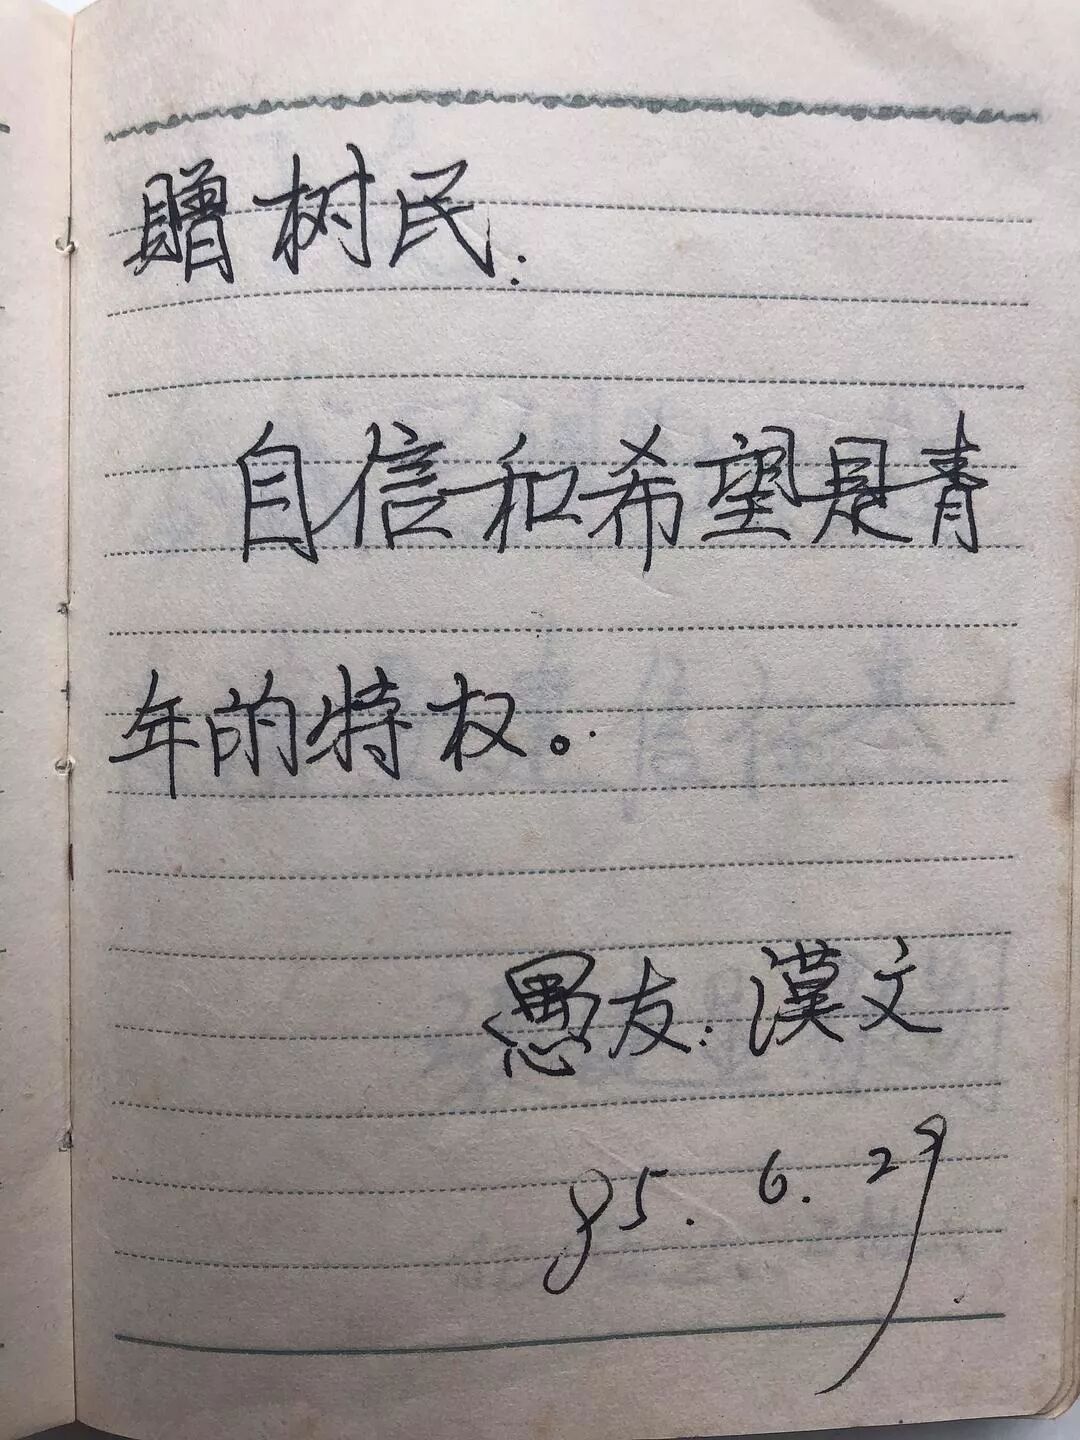 贈树民:
自信和希望是青
年的特权。
愚友:漢文
85.6.29